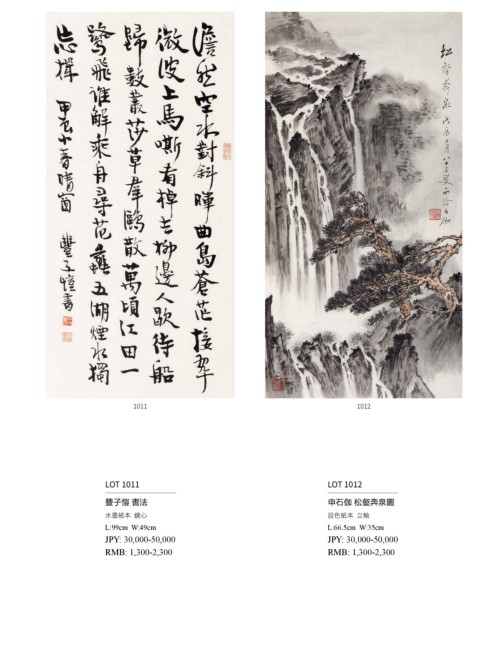 澹然空水對斜暉曲島蒼茫接翠
微波上馬嘶看棹去柳邊人歇待船
歸數叢莎草羣鷗散萬頃江田一
鷺飛誰解乘舟尋范蠡五湖煙水獨
忘機 甲辰小春晴窗 豐子愷書
松壑奔泉 戊辰 申石伽
1011
1012
LOT 1011
豐子愷 書法
水墨紙本 鏡心
L:99cm W:49cm
JPY: 30,000-50,000
RMB: 1,300-2,300
LOT 1012
申石伽 松壑奔泉圖
設色紙本 立軸
L:66.5cm W:35cm
JPY: 30,000-50,000
RMB: 1,300-2,300